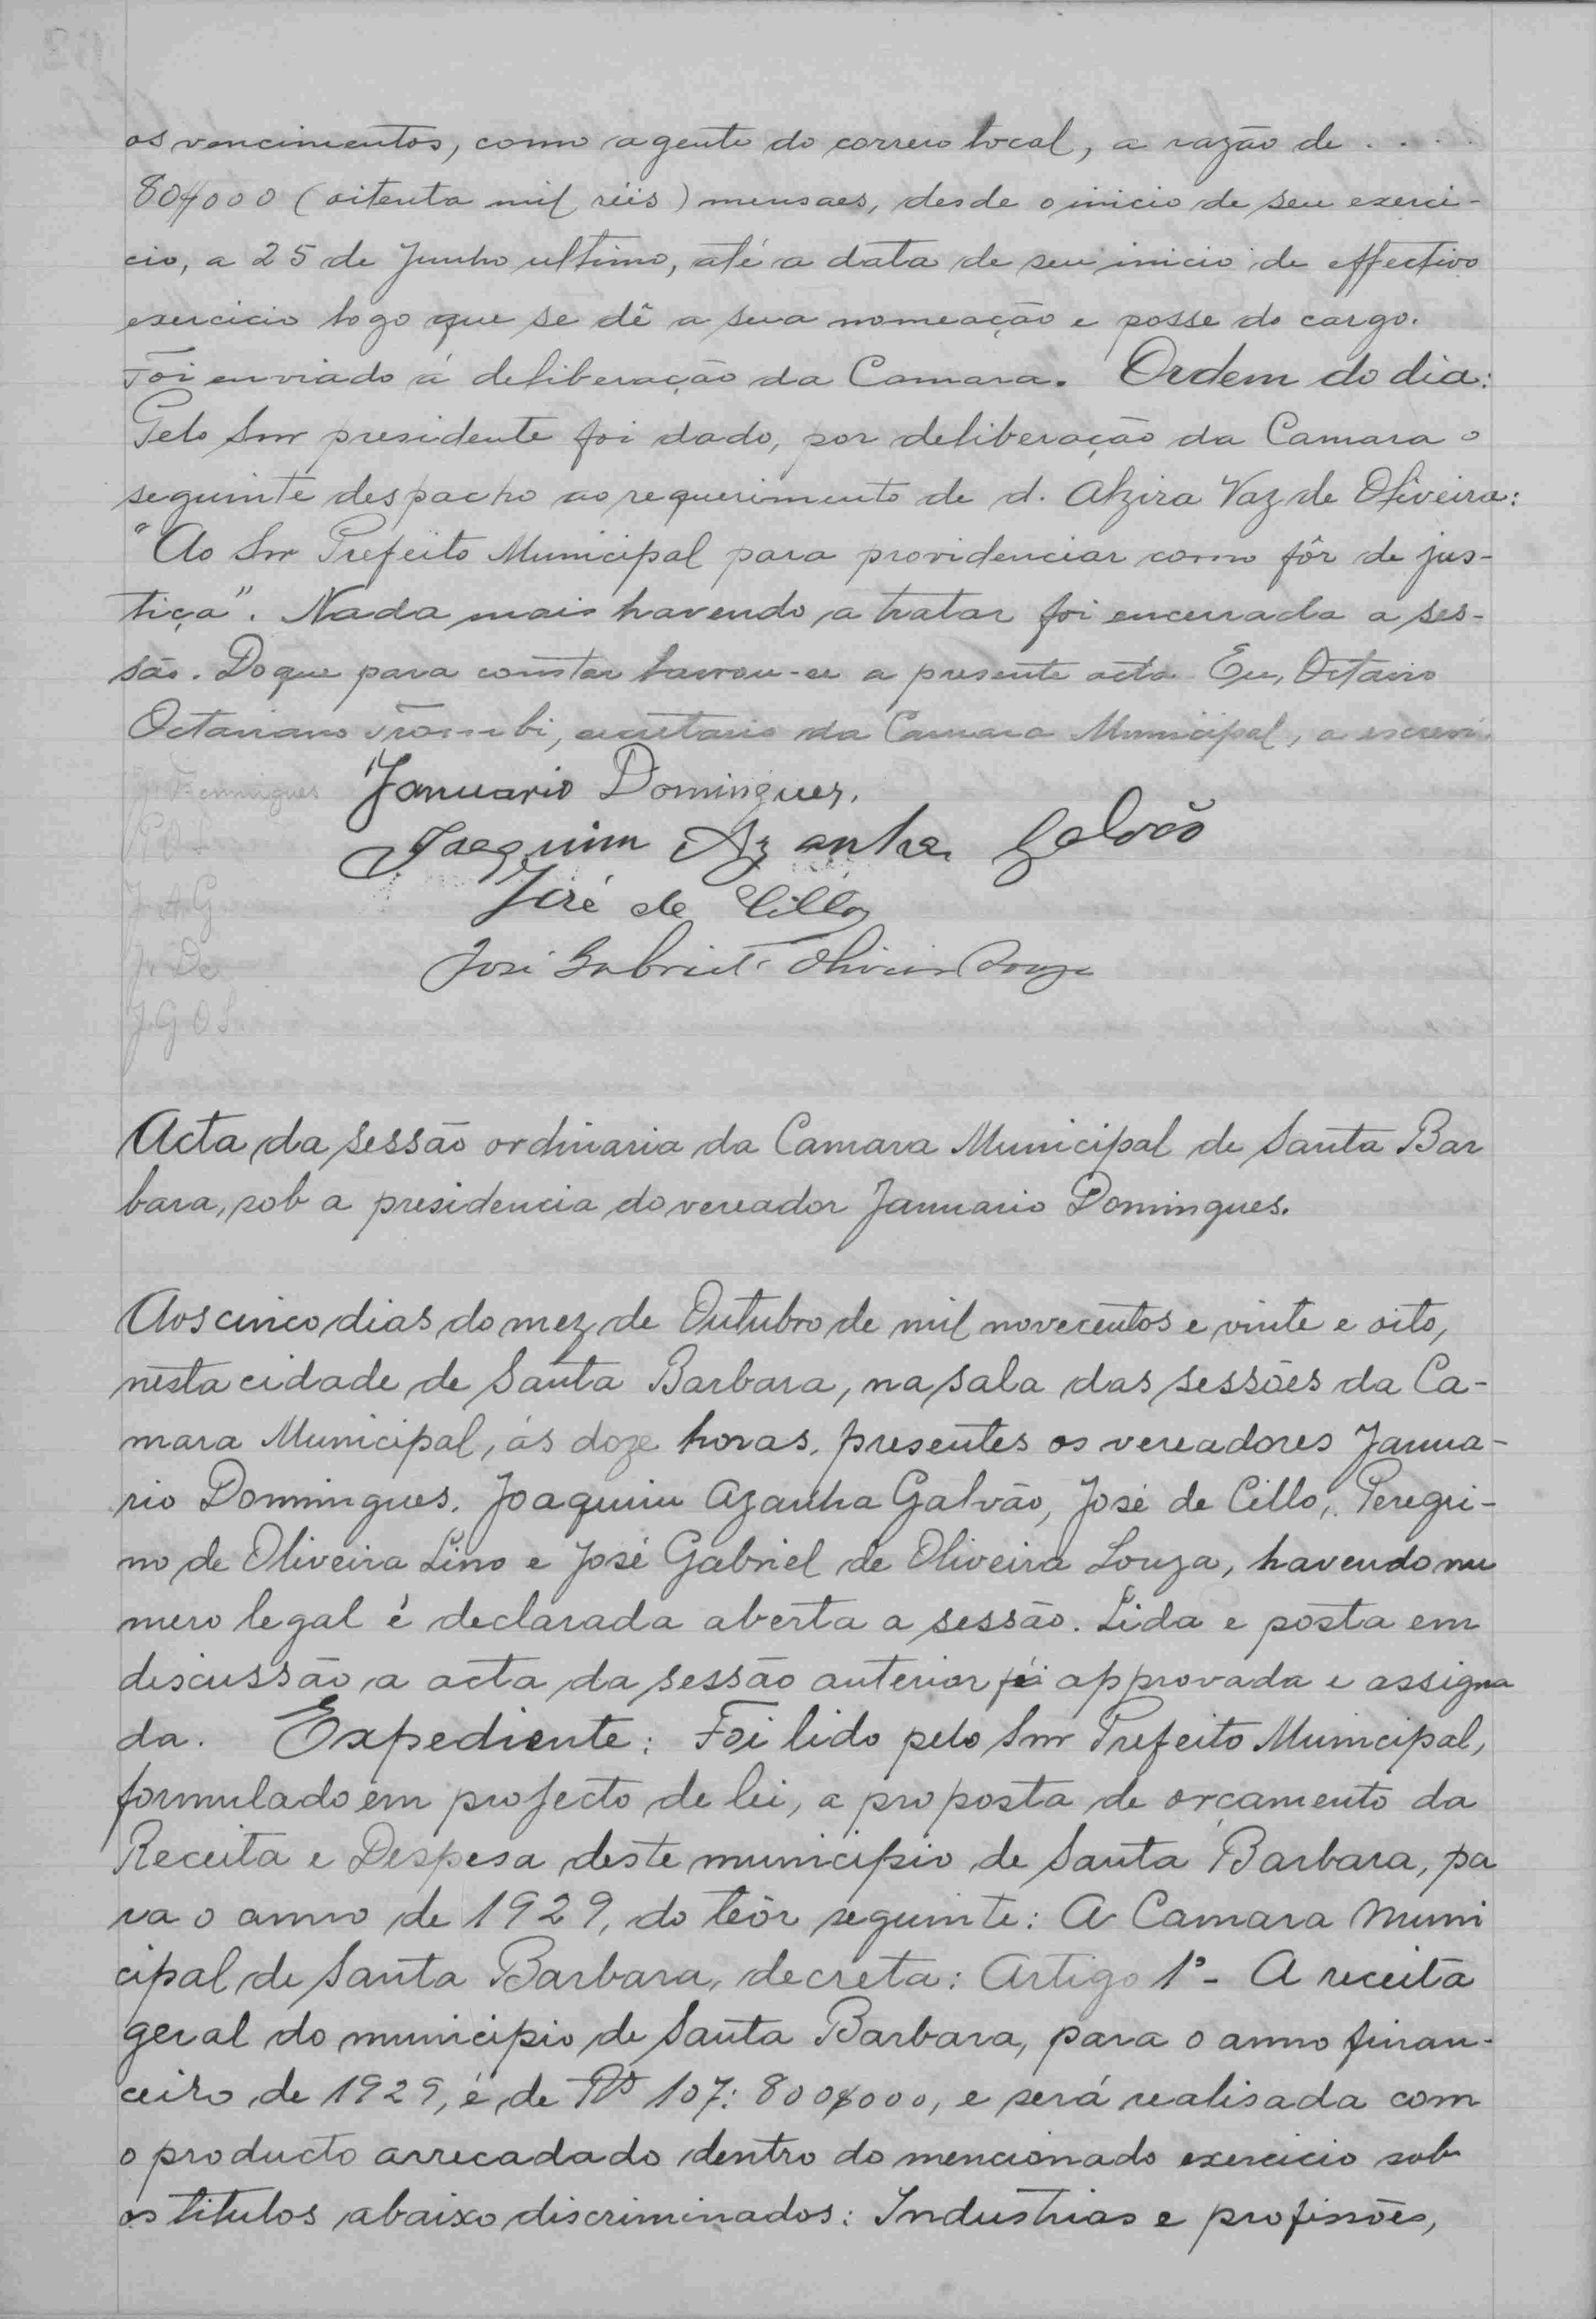 os vencimentos, como agente do correio local, a razão de . . . .
80$000 (oitenta mil réis) mensaes, desde o inicio de seu exerci-
cio, a 25 de Junho ultimo, até a data de seu inicio de effectivo
exercicio logo que se dê a sua nomeação e posse do cargo.
Foi enviado á deliberação da Camara. Ordem do dia:
Pelo Snr presidente foi dado, por deliberação da Camara o
seguinte despacho ao requerimento de d. Alzira Vaz de Oliveira:
"Ao Snr Prefeito Municipal para providenciar como fôr de jus-
tiça". Nada mais havendo a tratar foi encerrada a ses-
são. Do que para constar lavrou-se a presente acta. Eu, Octavio
Octaviano Trombi, secretario da Camara Municipal, a escrevi
Januario Domingues.
Joaquim Azanha Galvão
José de Cillo
José Gabriel Oliveira Souza
J. A. G
J. De
J G O S
Acta da sessão ordinaria da Camara Municipal de Santa Bar
bara, sob a presidencia do vereador Januario Domingues.
Aos cinco dias do mez de Outubro de mil novecentos e vinte e oito,
nesta cidade de Santa Barbara, na sala das sessões da Ca-
mara Municipal, ás doze horas, presentes os vereadores Janua-
rio Domingues, Joaquim Azanha Galvão, José de Cillo, Peregri-
no de Oliveira Lino e José Gabriel de Oliveira Souza, havendo nu
mero legal é declarada aberta a sessão. Lida e posta em
discussão a acta da sessão anterior foi approvada e assigna
da. Expediente: Foi lido pelo Snr Prefeito Municipal,
formulado em projecto de lei, a proposta de orçamento da
Receita e Despesa deste municipio de Santa Barbara, pa
ra o anno de 1929, do teôr seguinte: A Camara Muni
cipal de Santa Barbara, decreta: Artigo 1º - A receita
geral do municipio de Santa Barbara, para o anno finan-
ceiro de 1929, é de Rs 107:800$000, e será realisada com
o producto arrecadado dentro do mencionado exercicio sob
os titulos abaixo discriminados: Industrias e profissões,